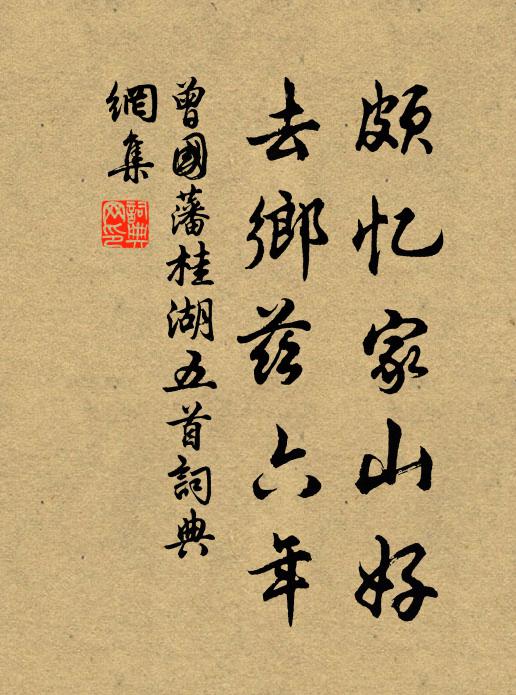 颇忆家山好
去鄉茲六年
曾國藩桂湖五首詞典
網集
詞典
网印